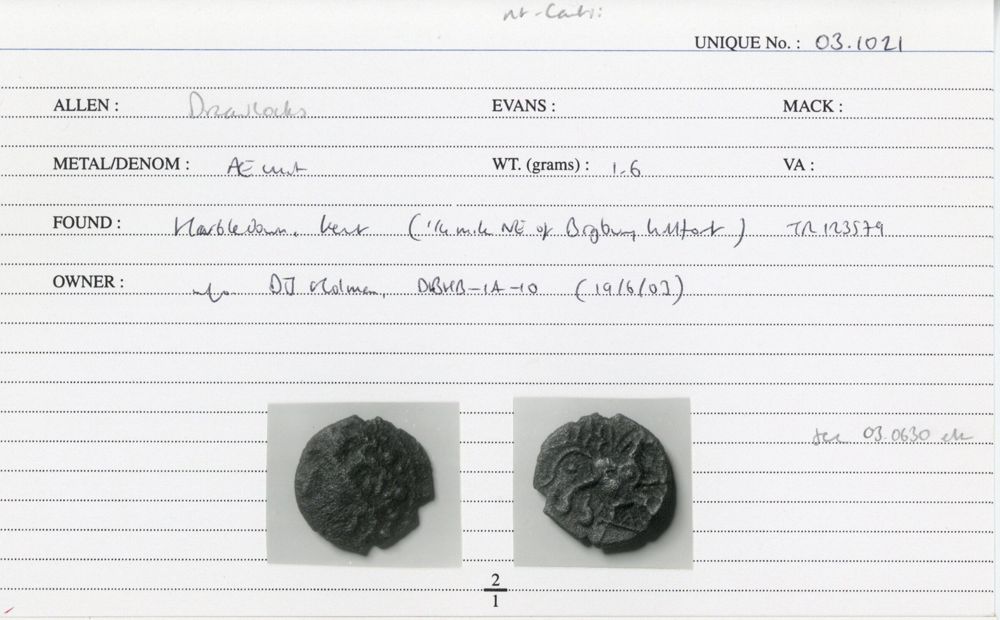 UNIQUE No. : 03.1021
ALLEN : Dreadlocks EVANS : MACK :
METAL/DENOM : Æ unit WT. (grams) : 1.6 VA :
FOUND : Harbledown, Kent (1/4 mile NE of Bigbury hillfort) TR 123579
OWNER : DJ Holman, DBHB-1A-10 (19/6/03)
see 03.0630 etc
2
1